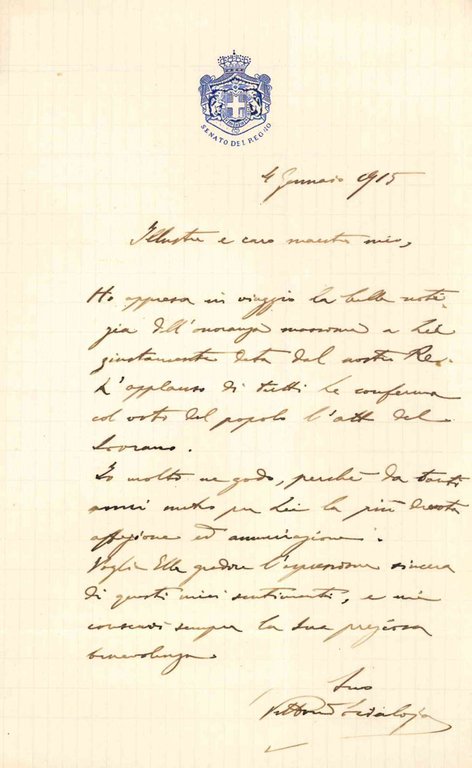 SENATO DEL REGNO
4 Gennaio 1915
Illustre e caro maestro mio,
Ho appreso in viaggio la bella noti-
zia dell'onoranza massima a Lei
giustamente data dal nostro Re.
L'applauso di tutti Le conferma
col voto del popolo l'atto del
Sovrano.
Io molto ne godo, perchè da tanti
anni nutro per Lei la più devota
affezione ed ammirazione.
Voglia Ella gradire l'espressione sincera
di questi miei sentimenti, e mi
conservi sempre la Sua preziosa
benevolenza
Suo
Vittorio Scialoja